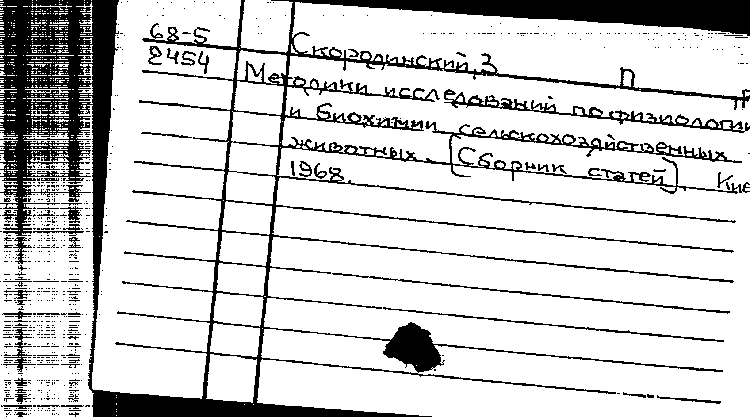 68-5
2454
Скородинский, З П
Методики исследований по физиологии
и биохимии сельскохозяйственных
животных. [Сборник статей]. Кие
1968.